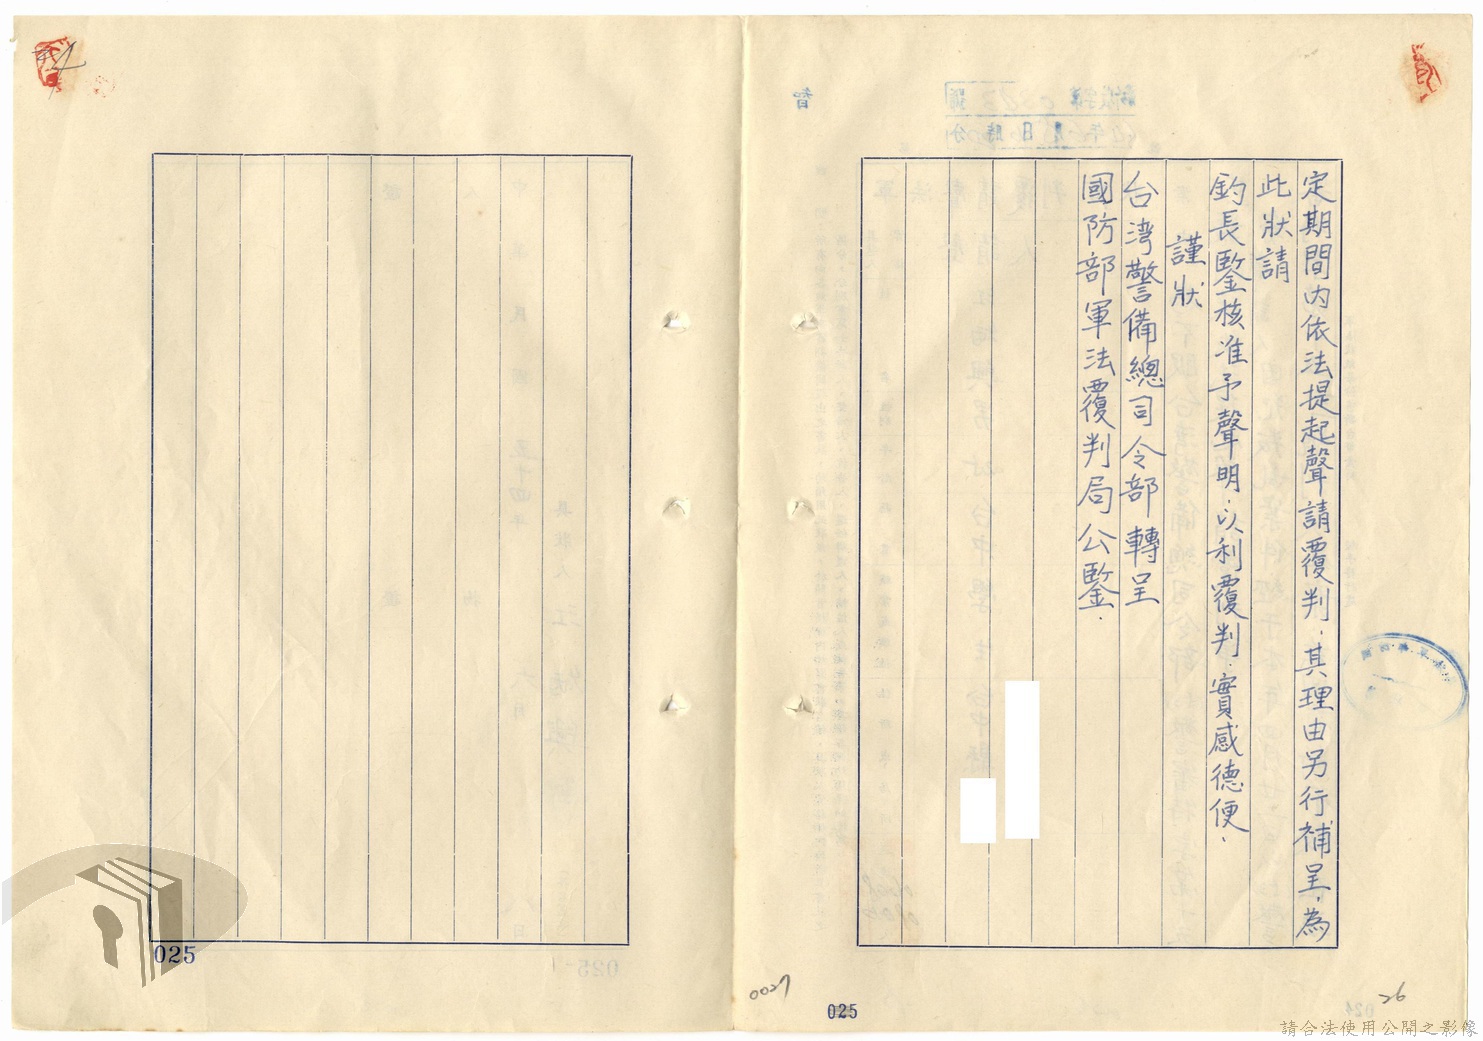 定期間內依法提起聲請覆判.其理由另行補呈,為
此狀請
鈞長鑒核准予聲明.以利覆判.實感德便.
謹狀
台灣警備總司令部轉呈
國防部軍法覆判局公鑒.
智
025
025
0027
26
請合法使用公開之影像